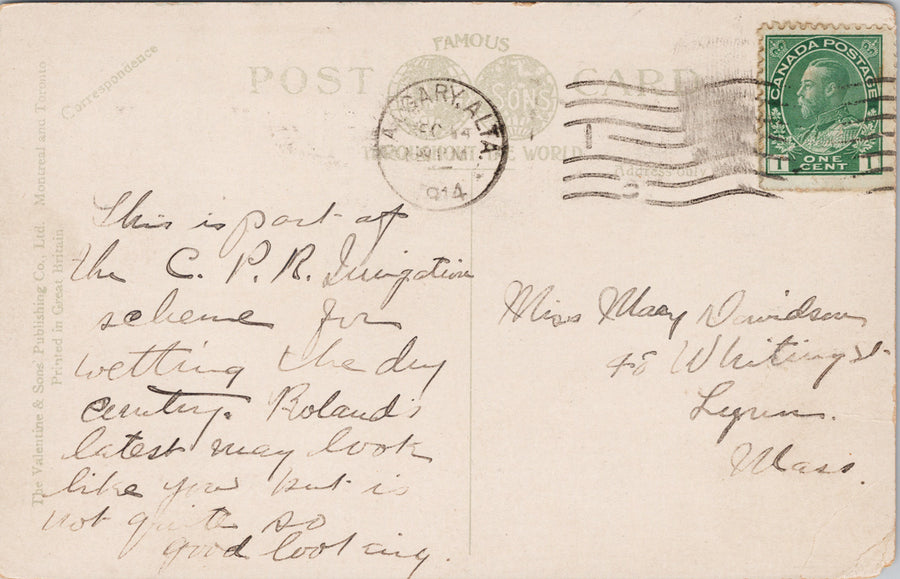 FAMOUS
POST CARD
SONS
THROUGHOUT THE WORLD
Correspondence
Address only
The Valentine & Sons Publishing Co., Ltd. Montreal and Toronto
Printed in Great Britain.
CALGARY, ALTA
1914
CANADA POSTAGE
1 ONE CENT 1
This is part of
the C. P. R. Irrigation
scheme for
wetting the dry
country. Roland's
latest may look
like you but is
not quite so
good looking.
Miss Mary Davidson
48 Whiting St.
Lynn.
Mass.